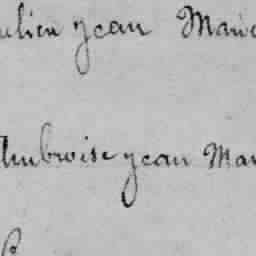 ulien Jean Marie
Ambroise Jean Mar